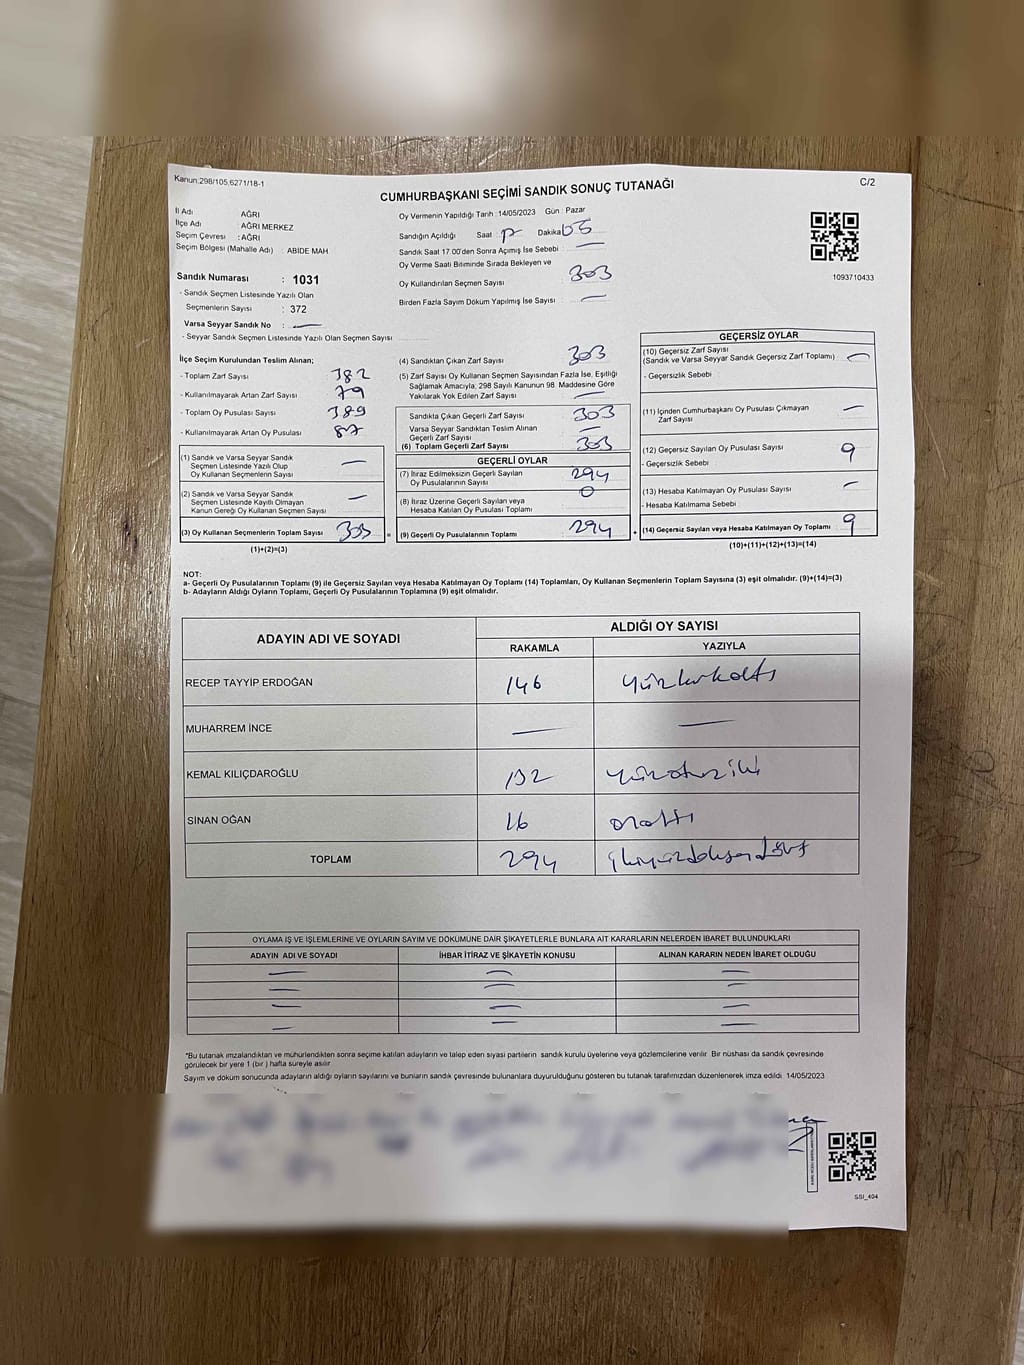 Kanun.298/105,6271/18-1
CUMHURBAŞKANI SEÇİMİ SANDIK SONUÇ TUTANAĞI
C/2
İl Adı AĞRI
İlçe Adı AĞRI MERKEZ
Seçim Çevresi : AĞRI
Seçim Bölgesi (Mahalle Adı) : ABİDE MAH
Sandık Numarası : 1031
- Sandık Seçmen Listesinde Yazılı Olan
Seçmenlerin Sayısı : 372
Varsa Seyyar Sandık No : —
- Seyyar Sandık Seçmen Listesinde Yazılı Olan Seçmen Sayısı
Oy Vermenin Yapıldığı Tarih : 14/05/2023 Gün : Pazar
Sandığın Açıldığı Saat Dakika
Sandık Saat 17:00'den Sonra Açılmış İse Sebebi —
Oy Verme Saati Bitiminde Sırada Bekleyen ve
Oy Kullandırılan Seçmen Sayısı 303
Birden Fazla Sayım Döküm Yapılmış İse Sayısı —
1093710433
İlçe Seçim Kurulundan Teslim Alınan;
- Toplam Zarf Sayısı 382
- Kullanılmayarak Artan Zarf Sayısı 79
- Toplam Oy Pusulası Sayısı 389
- Kullanılmayarak Artan Oy Pusulası 87
(1) Sandık ve Varsa Seyyar Sandık
Seçmen Listesinde Yazılı Olup
Oy Kullanan Seçmenlerin Sayısı —
(2) Sandık ve Varsa Seyyar Sandık
Seçmen Listesinde Kayıtlı Olmayan
Kanun Gereği Oy Kullanan Seçmen Sayısı —
(3) Oy Kullanan Seçmenlerin Toplam Sayısı 303 =
(1)+(2)=(3)
(4) Sandıktan Çıkan Zarf Sayısı 303
(5) Zarf Sayısı Oy Kullanan Seçmen Sayısından Fazla İse, Eşitliği
Sağlamak Amacıyla, 298 Sayılı Kanunun 98. Maddesine Göre
Yakılarak Yok Edilen Zarf Sayısı —
Sandıkta Çıkan Geçerli Zarf Sayısı 303
Varsa Seyyar Sandıktan Teslim Alınan
Geçerli Zarf Sayısı —
(6) Toplam Geçerli Zarf Sayısı 303
GEÇERLİ OYLAR
(7) İtiraz Edilmeksizin Geçerli Sayılan
Oy Pusulalarının Sayısı 294
(8) İtiraz Üzerine Geçerli Sayılan veya
Hesaba Katılan Oy Pusulası Toplamı 0
(9) Geçerli Oy Pusulalarının Toplamı 294 +
GEÇERSİZ OYLAR
(10) Geçersiz Zarf Sayısı
(Sandık ve Varsa Seyyar Sandık Geçersiz Zarf Toplamı) —
- Geçersizlik Sebebi :
(11) İçinden Cumhurbaşkanı Oy Pusulası Çıkmayan
Zarf Sayısı —
(12) Geçersiz Sayılan Oy Pusulası Sayısı 9
- Geçersizlik Sebebi :
(13) Hesaba Katılmayan Oy Pusulası Sayısı —
- Hesaba Katılmama Sebebi :
(14) Geçersiz Sayılan veya Hesaba Katılmayan Oy Toplamı 9
(10)+(11)+(12)+(13)=(14)
NOT:
a- Geçerli Oy Pusulalarının Toplamı (9) ile Geçersiz Sayılan veya Hesaba Katılmayan Oy Toplamı (14) Toplamları, Oy Kullanan Seçmenlerin Toplam Sayısına (3) eşit olmalıdır. (9)+(14)=(3)
b- Adayların Aldığı Oyların Toplamı, Geçerli Oy Pusulalarının Toplamına (9) eşit olmalıdır.
ADAYIN ADI VE SOYADI ALDIĞI OY SAYISI
RAKAMLA YAZIYLA
RECEP TAYYİP ERDOĞAN 146 yüzkırkaltı
MUHARREM İNCE — —
KEMAL KILIÇDAROĞLU 132 yüzotuziki
SİNAN OĞAN 16 onaltı
TOPLAM 294 ikiyüzdoksandört
OYLAMA İŞ VE İŞLEMLERİNE VE OYLARIN SAYIM VE DÖKÜMÜNE DAİR ŞİKAYETLERLE BUNLARA AİT KARARLARIN NELERDEN İBARET BULUNDUKLARI
ADAYIN ADI VE SOYADI İHBAR İTİRAZ VE ŞİKAYETİN KONUSU ALINAN KARARIN NEDEN İBARET OLDUĞU
— — —
— — —
— — —
— — —
*Bu tutanak imzalandıktan ve mühürlendikten sonra seçime katılan adayların ve talep eden siyasi partilerin sandık kurulu üyelerine veya gözlemcilerine verilir. Bir nüshası da sandık çevresinde
görülecek bir yere 1 (bir ) hafta süreyle asılır.
Sayım ve döküm sonucunda adayların aldığı oyların sayılarını ve bunların sandık çevresinde bulunanlara duyurulduğunu gösteren bu tutanak tarafımızdan düzenlenerek imza edildi. 14/05/2023
SSI_404